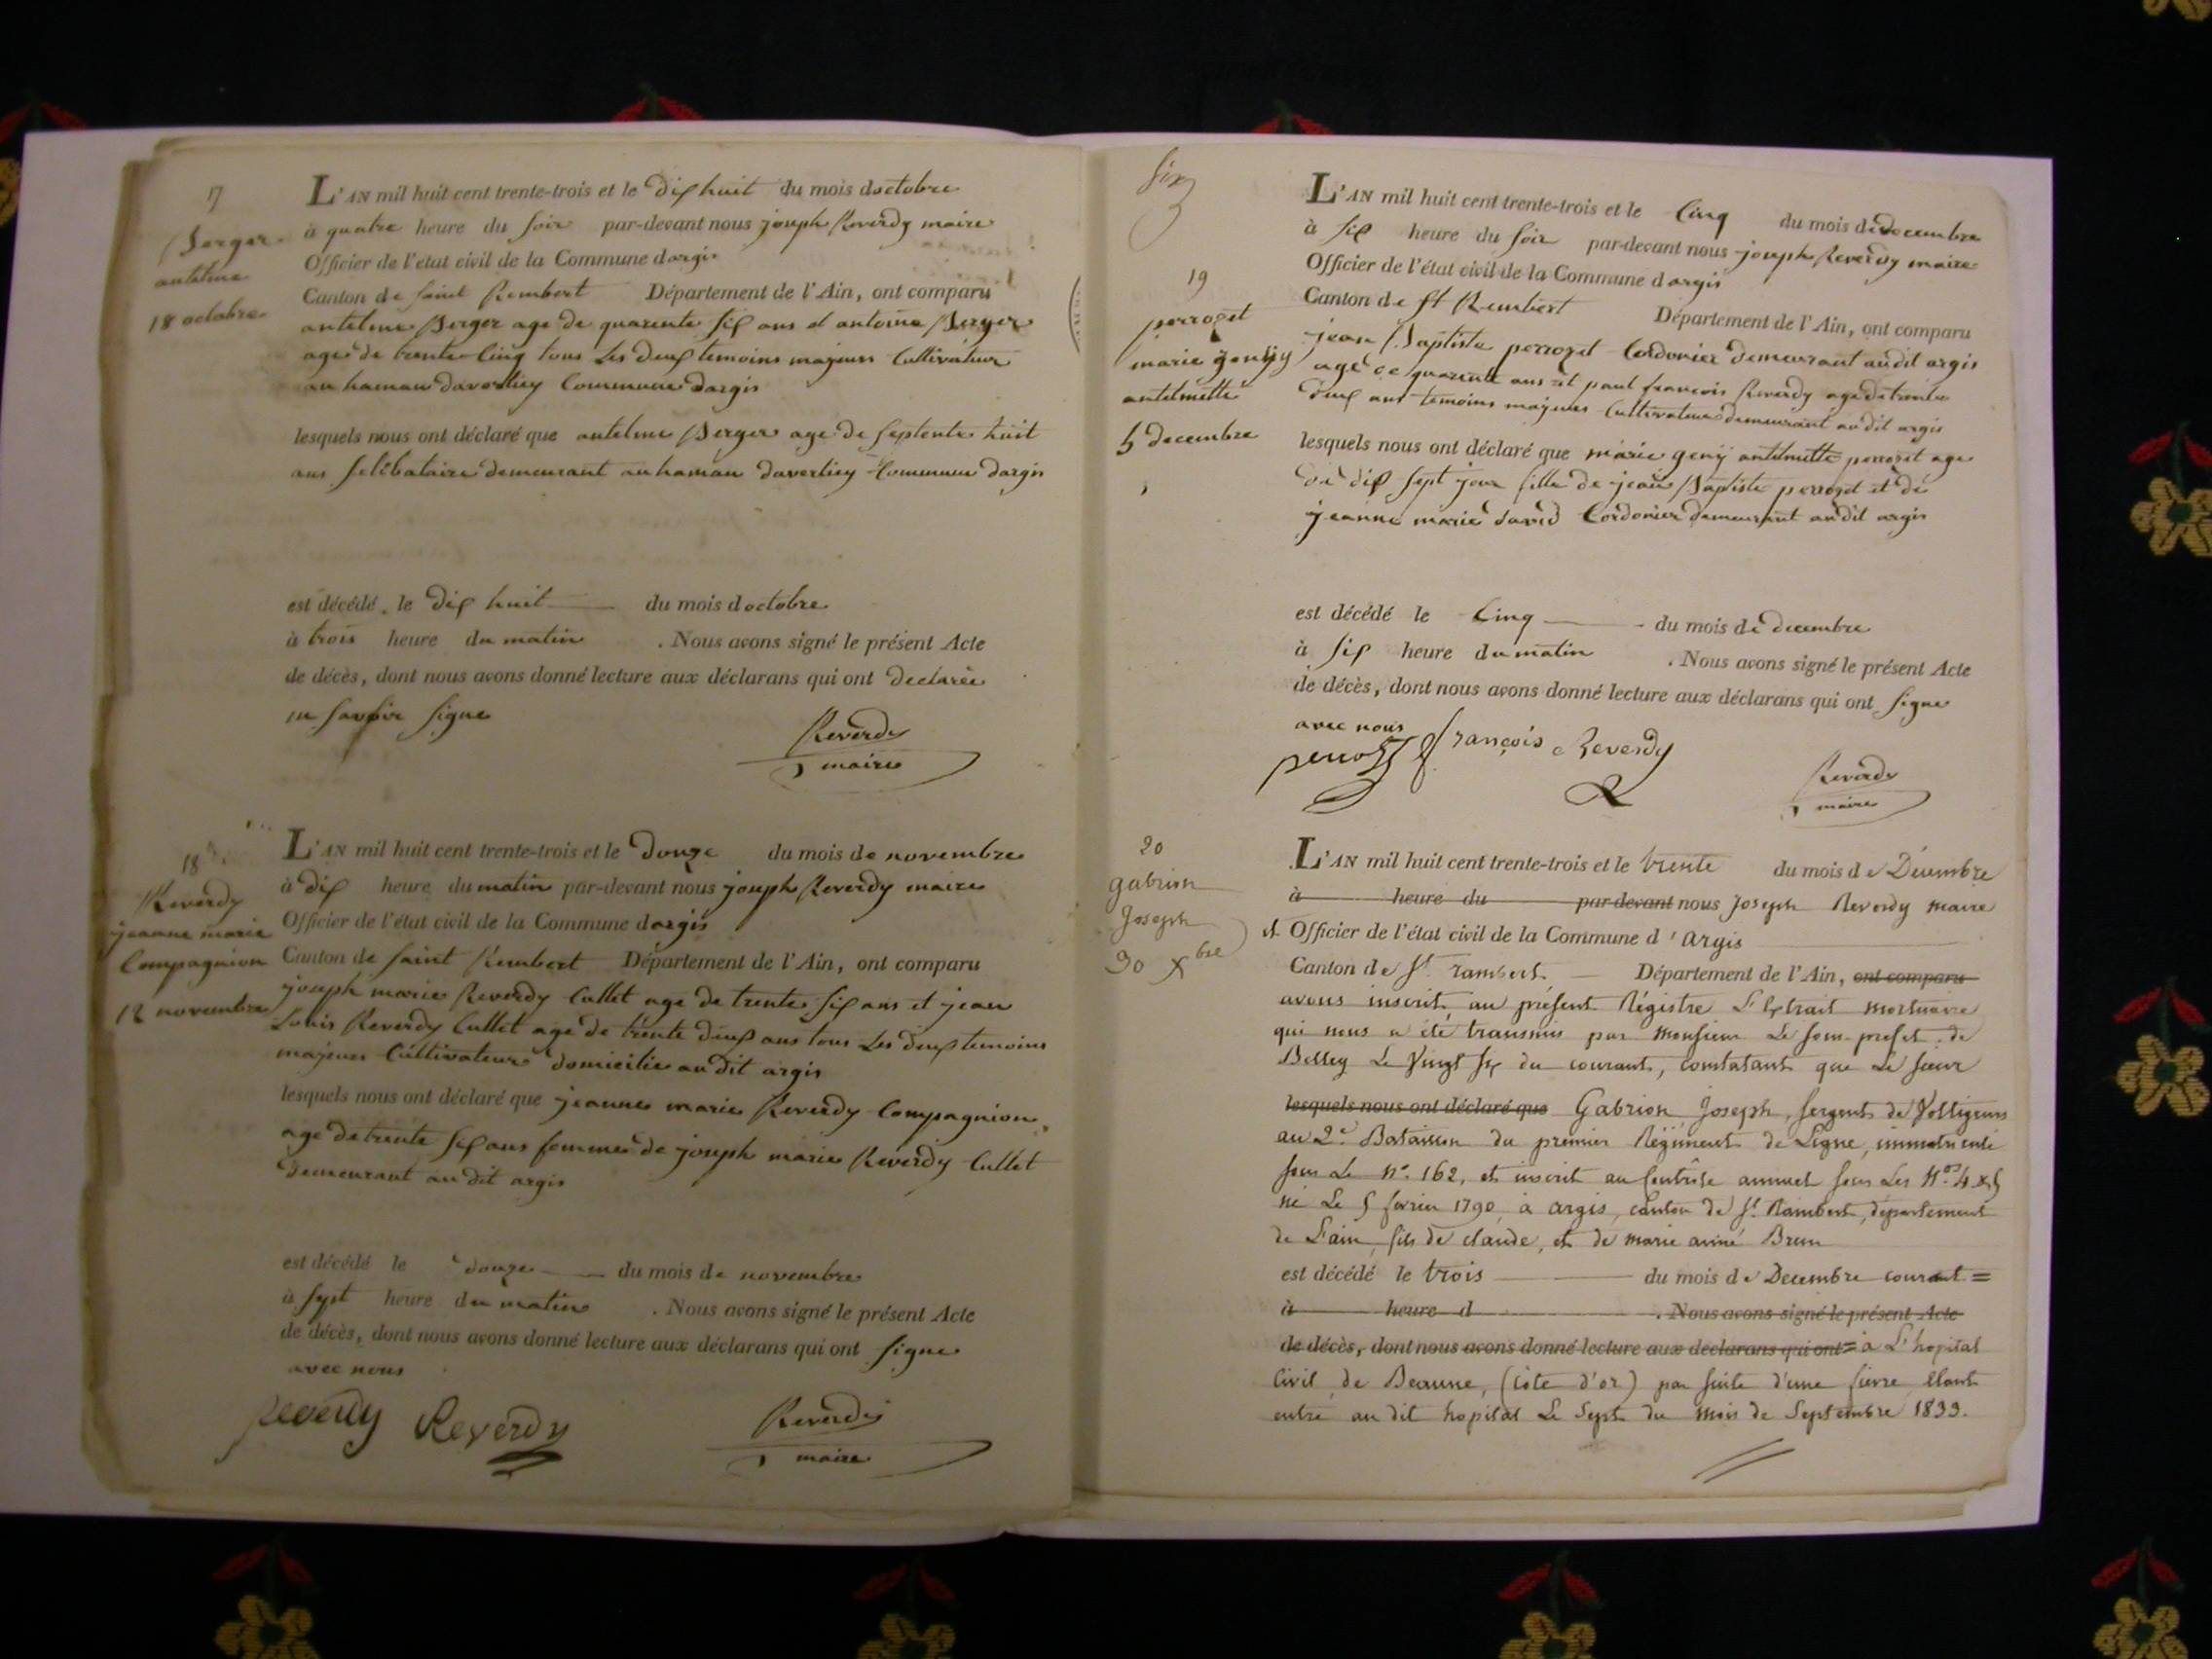 17
Berger
antelme
18 octobre
L'AN mil huit cent trente-trois et le dix huit du mois doctobre
à quatre heure du soir par-devant nous joseph Reverdy maire
Officier de l'état civil de la Commune dargis
Canton de saint Rembert Département de l'Ain, ont comparu
antelme Berger age de quarente six ans et antoine Berger
age de trente cinq tous les deux temoins majeurs cultivateur
au hamau davertiey Commune dargis
lesquels nous ont déclaré que antelme Berger age de septente huit
ans selibataire demeurant au hamau davertiey Commune dargis
est décédé le dix huit du mois doctobre
à trois heure du matin . Nous avons signé le présent Acte
de décès, dont nous avons donné lecture aux déclarans qui ont declarée
ne savoir signe
Reverdy
maire
18
Reverdy
jeanne marie
Compagnion
12 novembre
L'AN mil huit cent trente-trois et le douze du mois de novembre
à dix heure du matin par-devant nous joseph Reverdy maire
Officier de l'état civil de la Commune dargis
Canton de saint Rembert Département de l'Ain, ont comparu
joseph marie Reverdy Cullet age de trente six ans et jean
Louis Reverdy Cullet age de trente deux ans tous les deux temoins
majeurs Cultivateurs domicilie au dit argis
lesquels nous ont déclaré que jeanne marie Reverdy Compagnion
age de trente six ans femme de joseph marie Reverdy Cullet
demeurant au dit argis
est décédé le douze du mois de novembre
à sept heure du matin . Nous avons signé le présent Acte
de décès, dont nous avons donné lecture aux déclarans qui ont signe
avec nous
Reverdy Reverdy
Reverdy
maire
six
19
perrozet
marie
antelmette
5 decembre
L'AN mil huit cent trente-trois et le Cinq du mois de decembre
à six heure du soir par-devant nous joseph Reverdy maire
Officier de l'état civil de la Commune dargis
Canton de St Rembert Département de l'Ain, ont comparu
jean Baptiste perrozet Cordonier demeurant audit argis
age de quarente ans et paul francois Reverdy age de trente
deux ans temoins majeurs Cultivateurs demeurant au dit argis
lesquels nous ont déclaré que marie geny antelmette perrozet age
de dix sept jour fille de jean Baptiste perrozet et de
jeanne marie david Cordonier demeurant au dit argis
est décédé le Cinq du mois de decembre
à six heure du matin . Nous avons signé le présent Acte
de décès, dont nous avons donné lecture aux déclarans qui ont signe
avec nous
françois Reverdy
Reverdy
maire
20
gabrion
Joseph
30 Xbre
L'AN mil huit cent trente-trois et le trente du mois de Décembre
à heure du par-devant nous Joseph Reverdy maire
et Officier de l'état civil de la Commune d'Argis
Canton de St rambert Département de l'Ain, ont comparu
avons inscrit au présent Régistre L'Extrait mortuaire
qui nous a été transmis par Monsieur Le sous-prefet de
Belley Le Vingt six du courant, constatant que Le sieur
lesquels nous ont déclaré que Gabrion Joseph, sergent de Voltigeurs
au 2e Bataillon du premier Régiment de Ligne, immatriculé
sous Le n° 162, et inscrit au Controle annuel sous Les Nos 4 & 5
né Le 5 fevrier 1790, à argis, canton de St Rambert, département
de L'ain, fils de claude, et de marie aimé Brun
est décédé le trois du mois de Decembre courant =
à heure d . Nous avons signé le présent Acte
de décès, dont nous avons donné lecture aux déclarans qui ont = à L'hopital
Civil de Beaune, (Côte d'or) par suite d'une fievre étant
entré au dit hopital Le Sept du Mois de Septembre 1833.